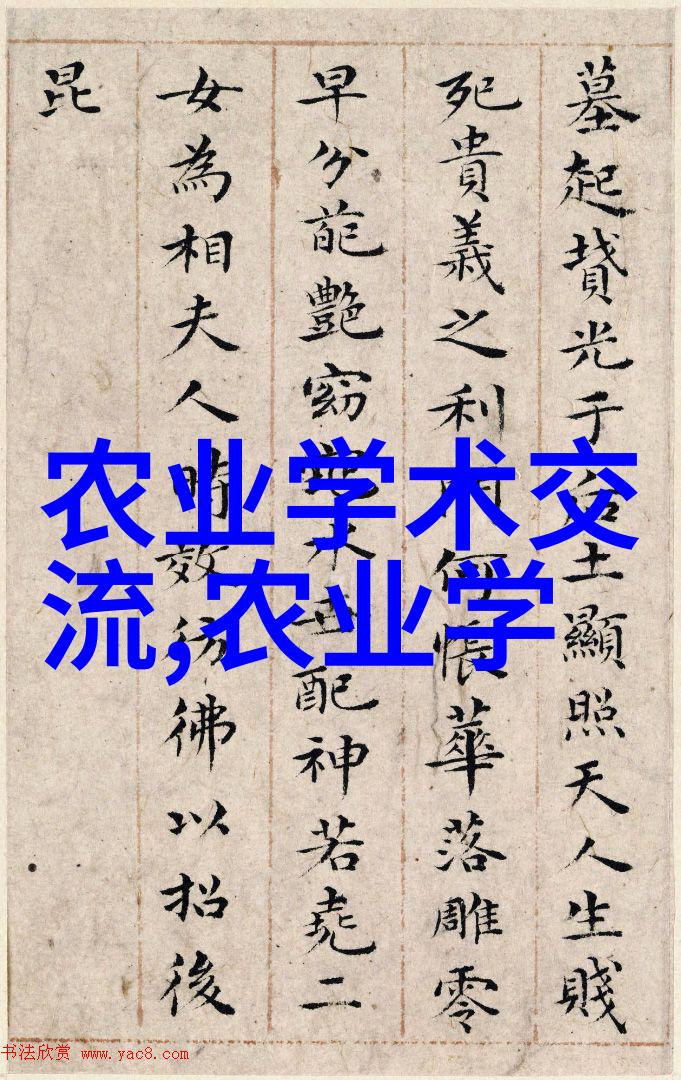 农业学术交
流,农业学
墓起墳光于后土顯照天人生賤
死貴義之利門何悵華落雕零
早分葩艷窈世配神若堯二
女為相夫人時效彷彿以招後
昆
书法欣赏 www.yac8.com